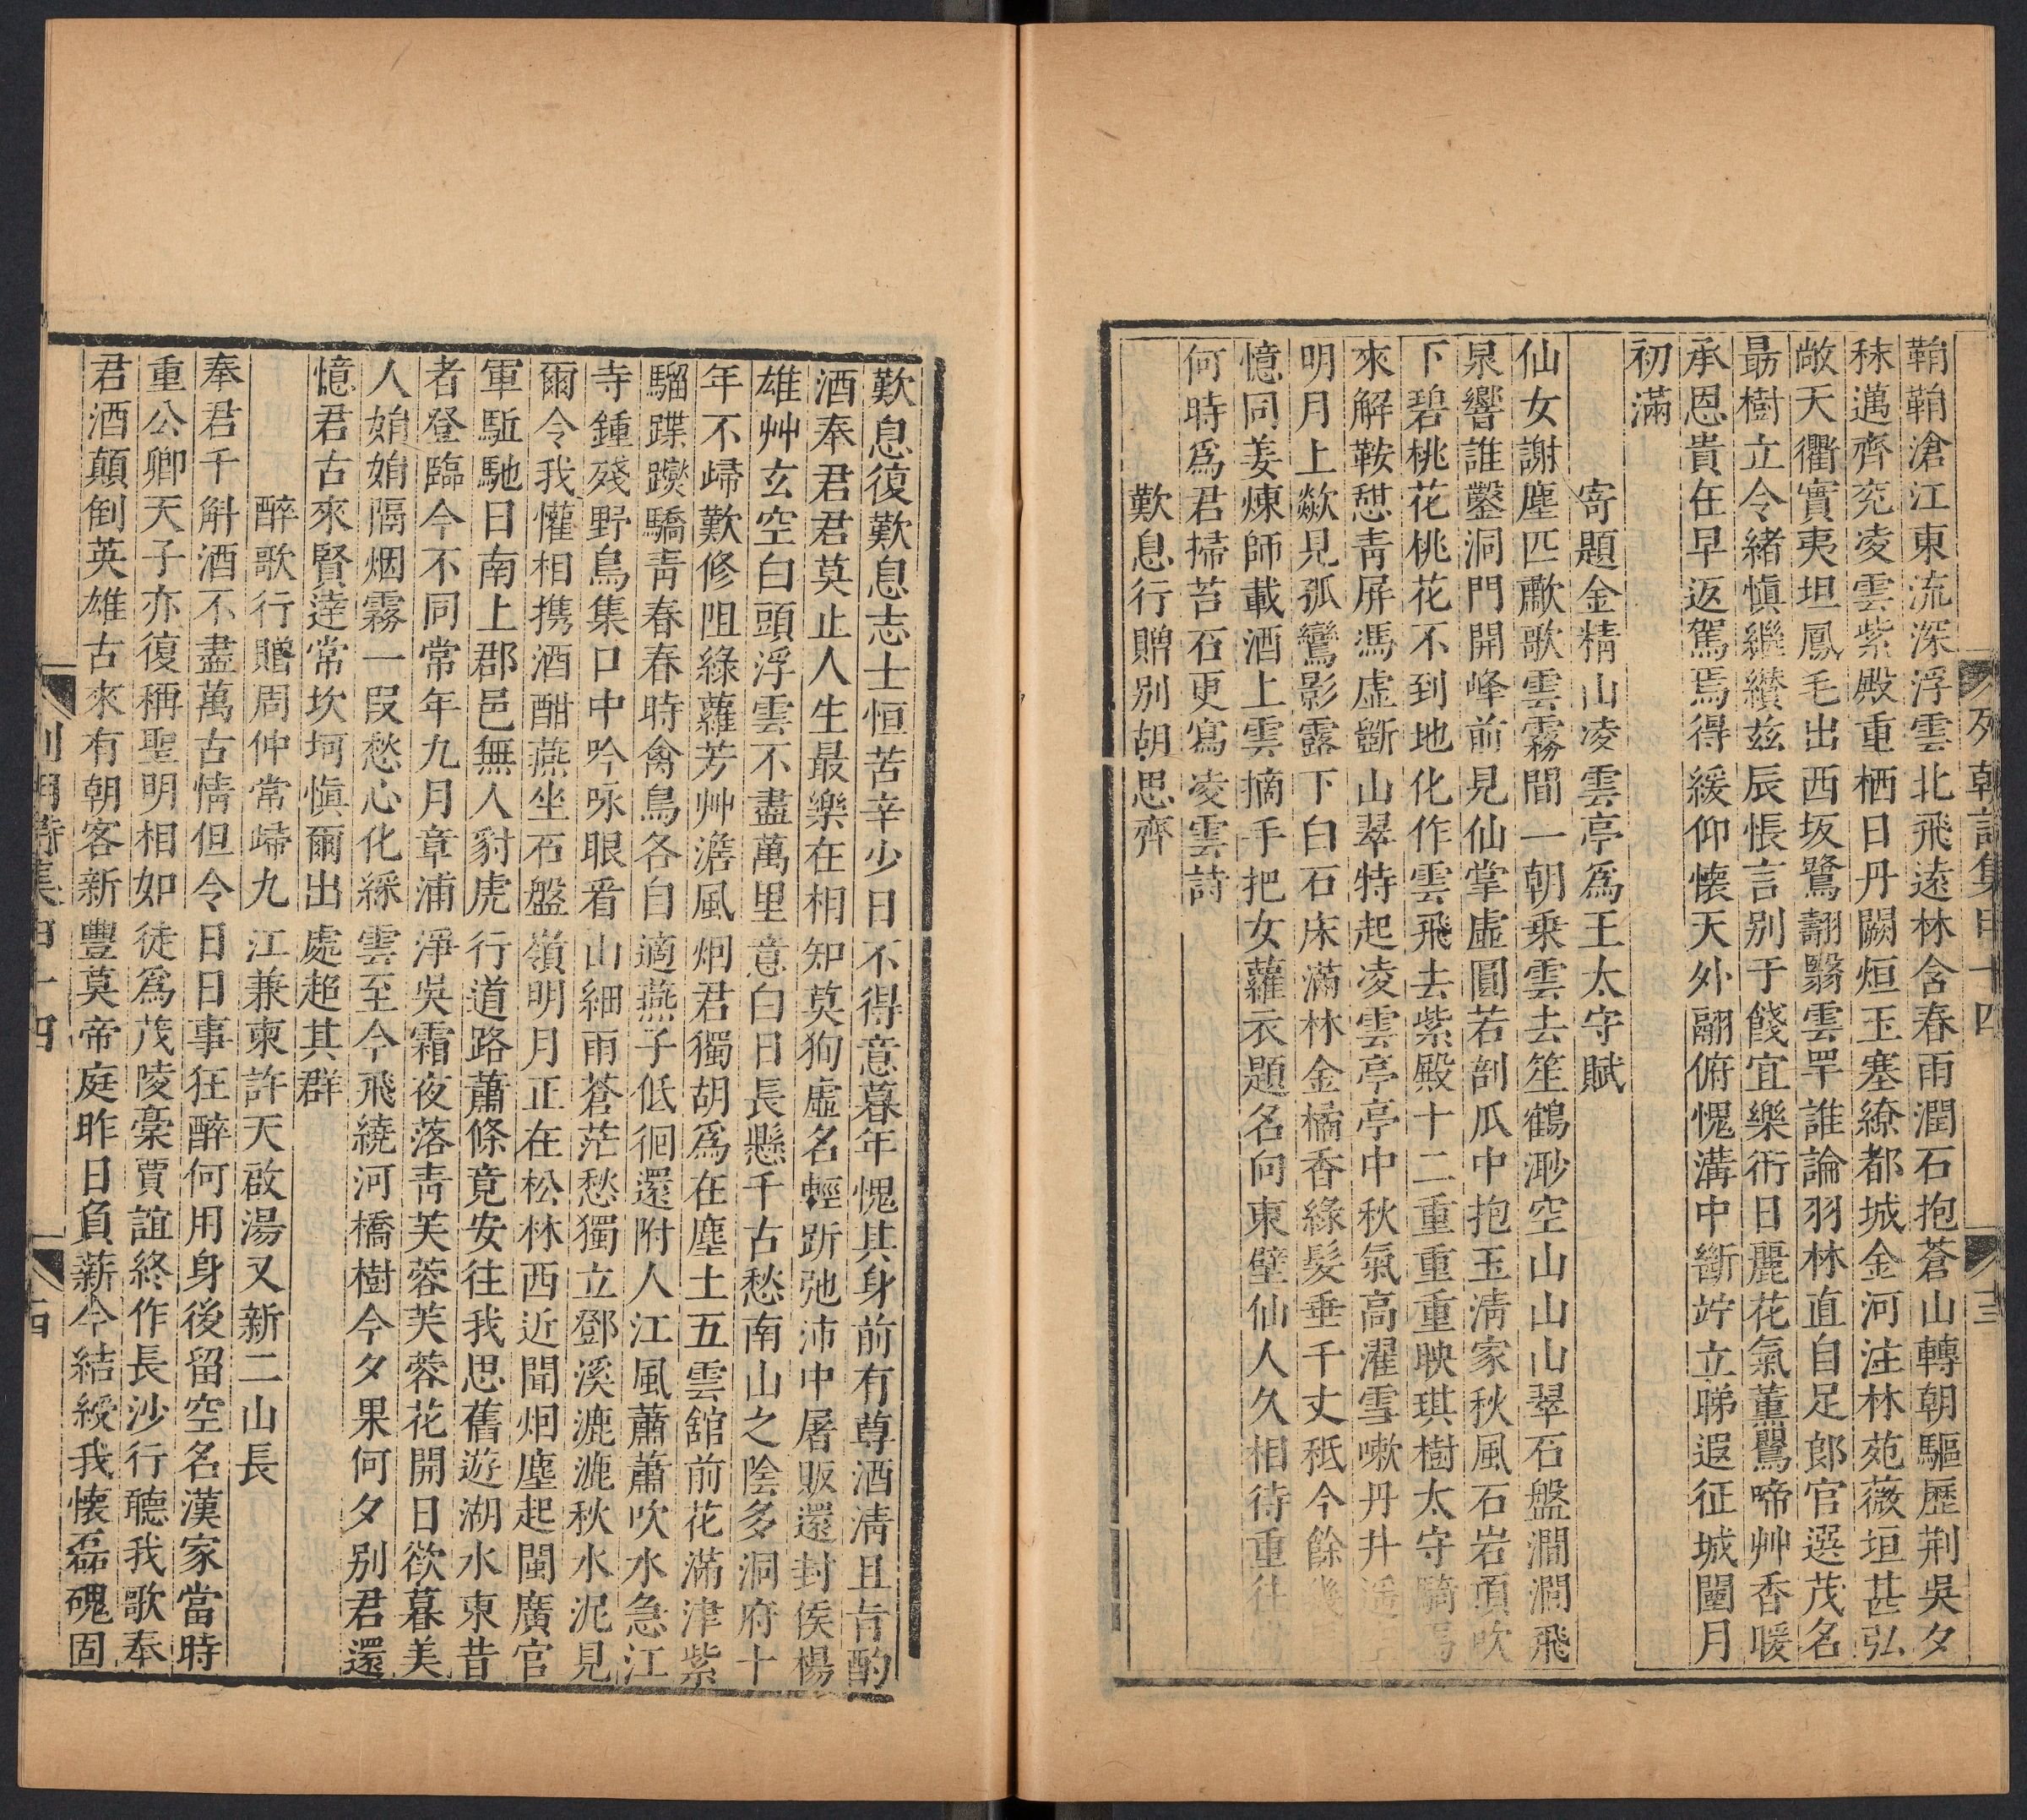 列朝詩集甲十四 三
鞘鞘滄江東流深浮雲北飛遠林含春雨潤石抱蒼山轉朝驅歷荆吳夕
秣邁齊兖凌雲紫殿重栖日丹闕烜玉塞繚都城金河注林苑薇垣甚弘
敞天衢實夷坦鳳毛出西坂鷺翿翳雲罕誰論羽林直自足郎官選茂名
勗樹立令緒愼繼纉兹辰悵言别于餞宜樂衎日麗花氣薰鸎啼艸香暖
承恩貴在早返駕焉得緩仰懷天外翮俯愧溝中斷竚立睇遐征城闉月
初滿
寄題金精山凌雲亭爲王太守賦
仙女謝塵匹歗歌雲霧間一朝乗雲去笙鶴渺空山山山翠石盤澗澗飛
泉響誰鑿洞門開峰前見仙掌虛圓若剖瓜中抱玉清家秋風石岩頂吹
下碧桃花桃花不到地化作雲飛去紫殿十二重重重映琪樹太守騎馬
來解鞍憇青屏馮虛斷山翠特起凌雲亭亭中秋氣高濯雪嗽丹井遥
明月上歘見孤鸞影露下白石床滿林金橘香緑髮垂千丈秖今餘幾
憶同姜煉師載酒上雲摘手把女蘿衣題名向東壁仙人久相待重往
何時爲君掃苔石更寫凌雲詩
歎息行贈别胡思齊
歎息復歎息志士恒苦辛少日不得意暮年愧其身前有尊酒清且旨酌
酒奉君君莫止人生最樂在相知莫狥虛名輕跅弛沛中屠販還封侯楊
雄艸玄空白頭浮雲不盡萬里意白日長懸千古愁南山之陰多洞府十
年不歸歎修阻緑蘿芳艸澹風烟君獨胡爲在塵土五雲舘前花滿津紫
騮蹀躞驕青春春時禽鳥各自適燕子低徊還附人江風蕭蕭吹水急江
寺鍾殘野鳥集口中吟咏眼看山細雨蒼茫愁獨立鄧溪漉漉秋水泥見
爾令我懽相携酒酣燕坐石盤嶺明月正在松林西近聞烟塵起閩廣官
軍駈馳日南上郡邑無人豺虎行道路蕭條竟安往我思舊遊湖水東昔
者登臨今不同常年九月章浦淨吳霜夜落青芙蓉芙蓉花開日欲暮美
人娟娟隔烟霧一叚愁心化綵雲至今飛繞河橋樹今夕果何夕别君還
憶君古來賢逹常坎坷愼爾出處超其群
醉歌行贈周仲常歸九江兼柬許天啟湯又新二山長
奉君千斛酒不盡萬古情但令日日事狂醉何用身後留空名漢家當時
重公卿天子亦復稱聖明相如徒爲茂陵稾賈誼終作長沙行聽我歌奉
君酒顛倒英雄古來有朝客新豐莫帝庭昨日負薪今結綬我懷磊磈固
列朝詩集甲十四 四